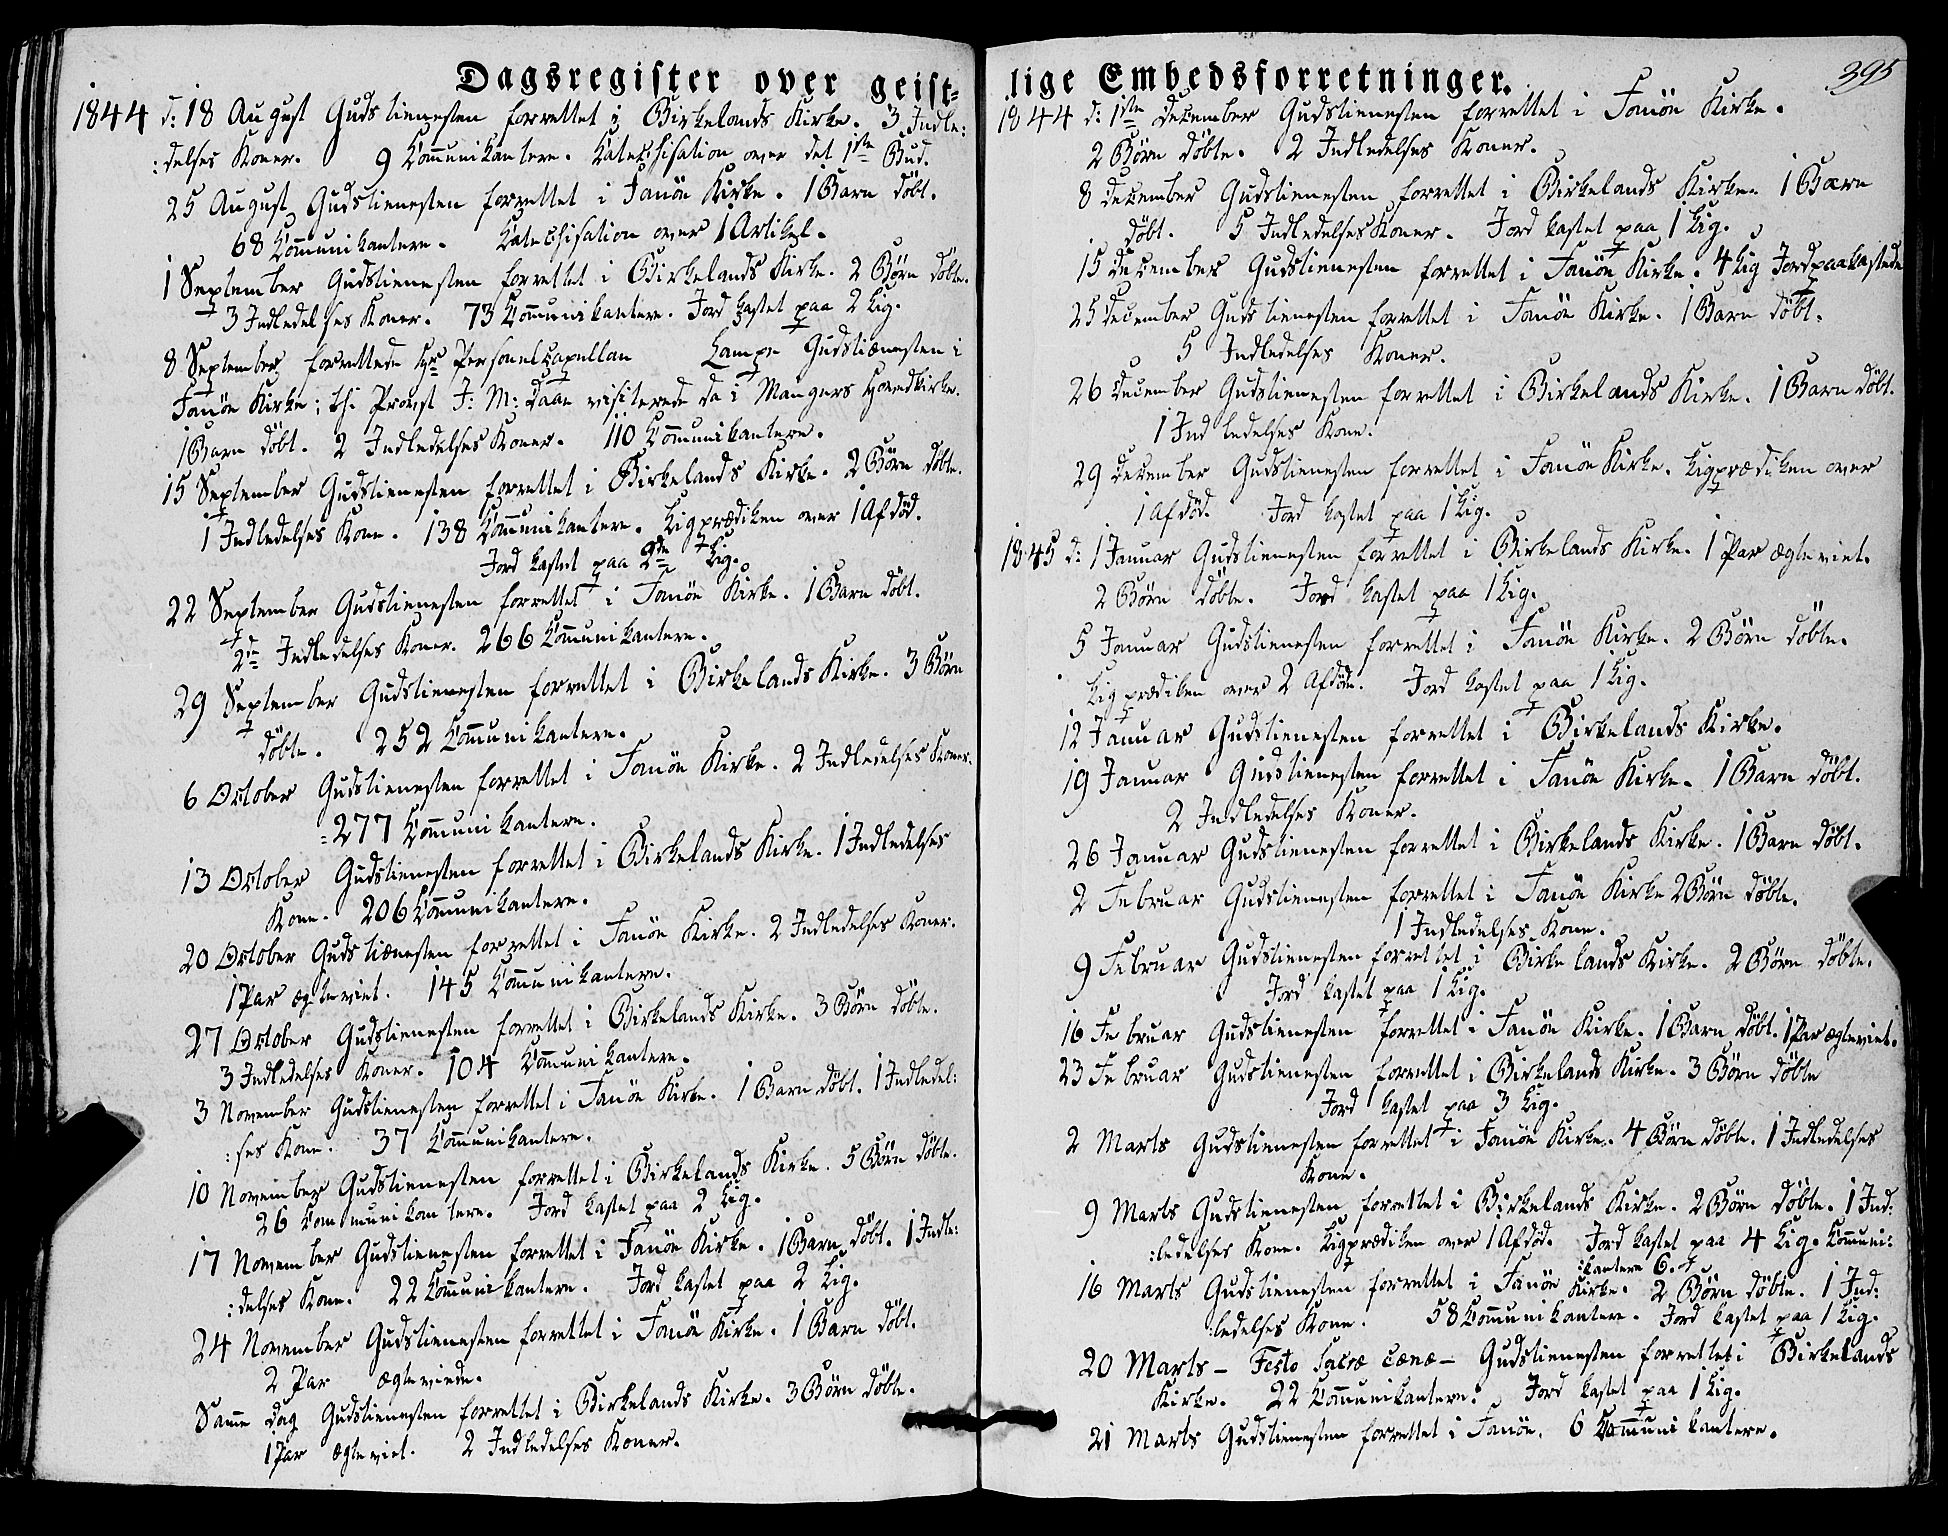 Dagsregister over geist=
1844 d: 18 August Gudstienesten forrettet i Birkelands Kirke. 3 Indle:
:delses Koner. 9 Com̅unikantere. Catechisation over det 1ste Bud.
25 August Gudstienesten forrettet i Fanöe Kirke. 1 Barn döbt.
68 Com̅unikantere. Catechisation over 1 Artikel.
1 September Gudstienesten forrettet i Birkelands Kirke. 2 Börn döbte.
3 Indledelses Koner. 73 Com̅unikantere. Jord kastet paa 2 Lig.
8 September forrettede Hr Personelcapellan Lampe Gudstiænesten i
Fanöe Kirke; thi Provst J: M: Daae visiterede da i Mangers Hovedkirke.
1 Barn döbt. 2 Indledelses Koner. 110 Com̅unikantere.
15 September Gudstienesten forrettet i Birkelands Kirke. 2 Börn döbte.
1 Indledelses Kone. 138 Com̅unikantere. Ligprædiken over 1 Afdöd.
Jord kastet paa 2de Lig.
22 September Gudstienesten forrettet i Fanöe Kirke. 1 Barn döbt.
2de Indledelses Koner. 266 Com̅unikantere.
29 September Gudstienesten forrettet i Birkelands Kirke. 3 Börn
döbte. 252 Com̅unikantere.
6 October Gudstienesten forrettet i Fanöe Kirke. 2 Indledelses Koner.
277 Com̅unikantere.
13 October Gudstienesten forrettet i Birkelands Kirke. 1 Indledelses
Kone. 206 Com̅unikantere.
20 October Gudstiænesten forrettet i Fanöe Kirke. 2 Indledelses Koner.
1 Par ægteviet. 145 Com̅unikantere.
27 October Gudstienesten forrettet i Birkelands Kirke. 3 Börn döbte.
3 Indledelses Koner. 104 Com̅unikantere.
3 November Gudstienesten forrettet i Fanöe Kirke. 1 Barn döbt. 1 Indledel:
:ses Kone. 37 Com̅unikantere.
10 November Gudstienesten forrettet i Birkelands Kirke. 5 Börn döbte.
26 Communikantere. Jord kastet paa 2 Lig.
17 November Gudstienesten forrettet i Fanöe Kirke. 1 Barn döbt. 1 Indle:
:delses Kone. 22 Com̅unikantere. Jord kastet paa 2 Lig.
24 November Gudstienesten forrettet i Fanöe Kirke. 1 Barn döbt.
2 Par ægteviede.
Sam̅e dag Gudstienesten forrettet i Birkelands Kirke. 3 Börn döbte.
1 Par ægteviet. 2 Indledelses Koner.
lige Embedsforretninger. 395
1844 d: 1ste December Gudstienesten forrettet i Fanöe Kirke.
2 Börn döbte. 2 Indledelses Koner.
8 December Gudstienesten forrettet i Birkelands Kirke. 1 Barn
döbt. 5 Indledelses Koner. Jord kastet paa 1 Lig.
15 December Gudstienesten forrettet i Fanöe Kirke. 4 Lig Jordpaakastede
25 December Gudstienesten forrettet i Fanöe Kirke. 1 Barn döbt.
5 Indledelses Koner.
26 December Gudstienesten forrettet i Birkelands Kirke. 1 Barn döbt.
1 Indledelses Kone.
29 December Gudstienesten forrettet i Fanöe Kirke. Ligprædiken over
1 Afdöd. Jord kastet paa 1 Lig.
1845 d: 1 Januar Gudstienesten forrettet i Birkelands Kirke. 1 Par ægteviet.
2 Börn döbte. Jord kastet paa 1 Lig.
5 Januar Gudstienesten forrettet i Fanöe Kirke. 2 Börn döbte.
Ligprædiken over 2 Afdöde. Jord kastet paa 1 Lig.
12 Januar Gudstienesten forrettet i Birkelands Kirke.
19 Januar Gudstienesten forrettet i Fanöe Kirke. 1 Barn döbt.
2 Indledelses Koner.
26 Januar Gudstienesten forrettet i Birkelands Kirke. 1 Barn döbt.
2 Februar Gudstienesten forrettet i Fanöe Kirke 2 Börn döbte.
1 Indledelses Kone.
9 Februar Gudstienesten forrettet i Birkelands Kirke. 2 Börn döbte.
Jord kastet paa 1 Lig.
16 Februar Gudstienesten forrettet i Fanöe Kirke. 1 Barn döbt. 1 Par ægteviet.
23 Februar Gudstienesten forrettet i Birkelands Kirke. 3 Börn döbte
Jord kastet paa 3 Lig.
2 Marts Gudstienesten forrettet i Fanöe Kirke. 4 Börn döbte. 1 Indledelses
Kone.
9 Marts Gudstienesten forrettet i Birkelands Kirke. 2 Börn döbte. 1 Ind:
:ledelses Kone. Ligprædiken over 1 Afdöd. Jord kastet paa 4 Lig. Com̅uni:
:kantere 6.
16 Marts Gudstienesten forrettet i Fanöe Kirke. 2 Börn döbte. 1 Ind:
:ledelses Kone. 58 Com̅unikantere. Jord kastet paa 1 Lig.
20 Marts - Festo Sacræ Cænæ - Gudstienesten forrettet i Birkelands
Kirke. 22 Com̅unikantere. Jord kastet paa 1 Lig.
21 Marts Gudstienesten forrettet i Fanöe. 6 Com̅unikantere.